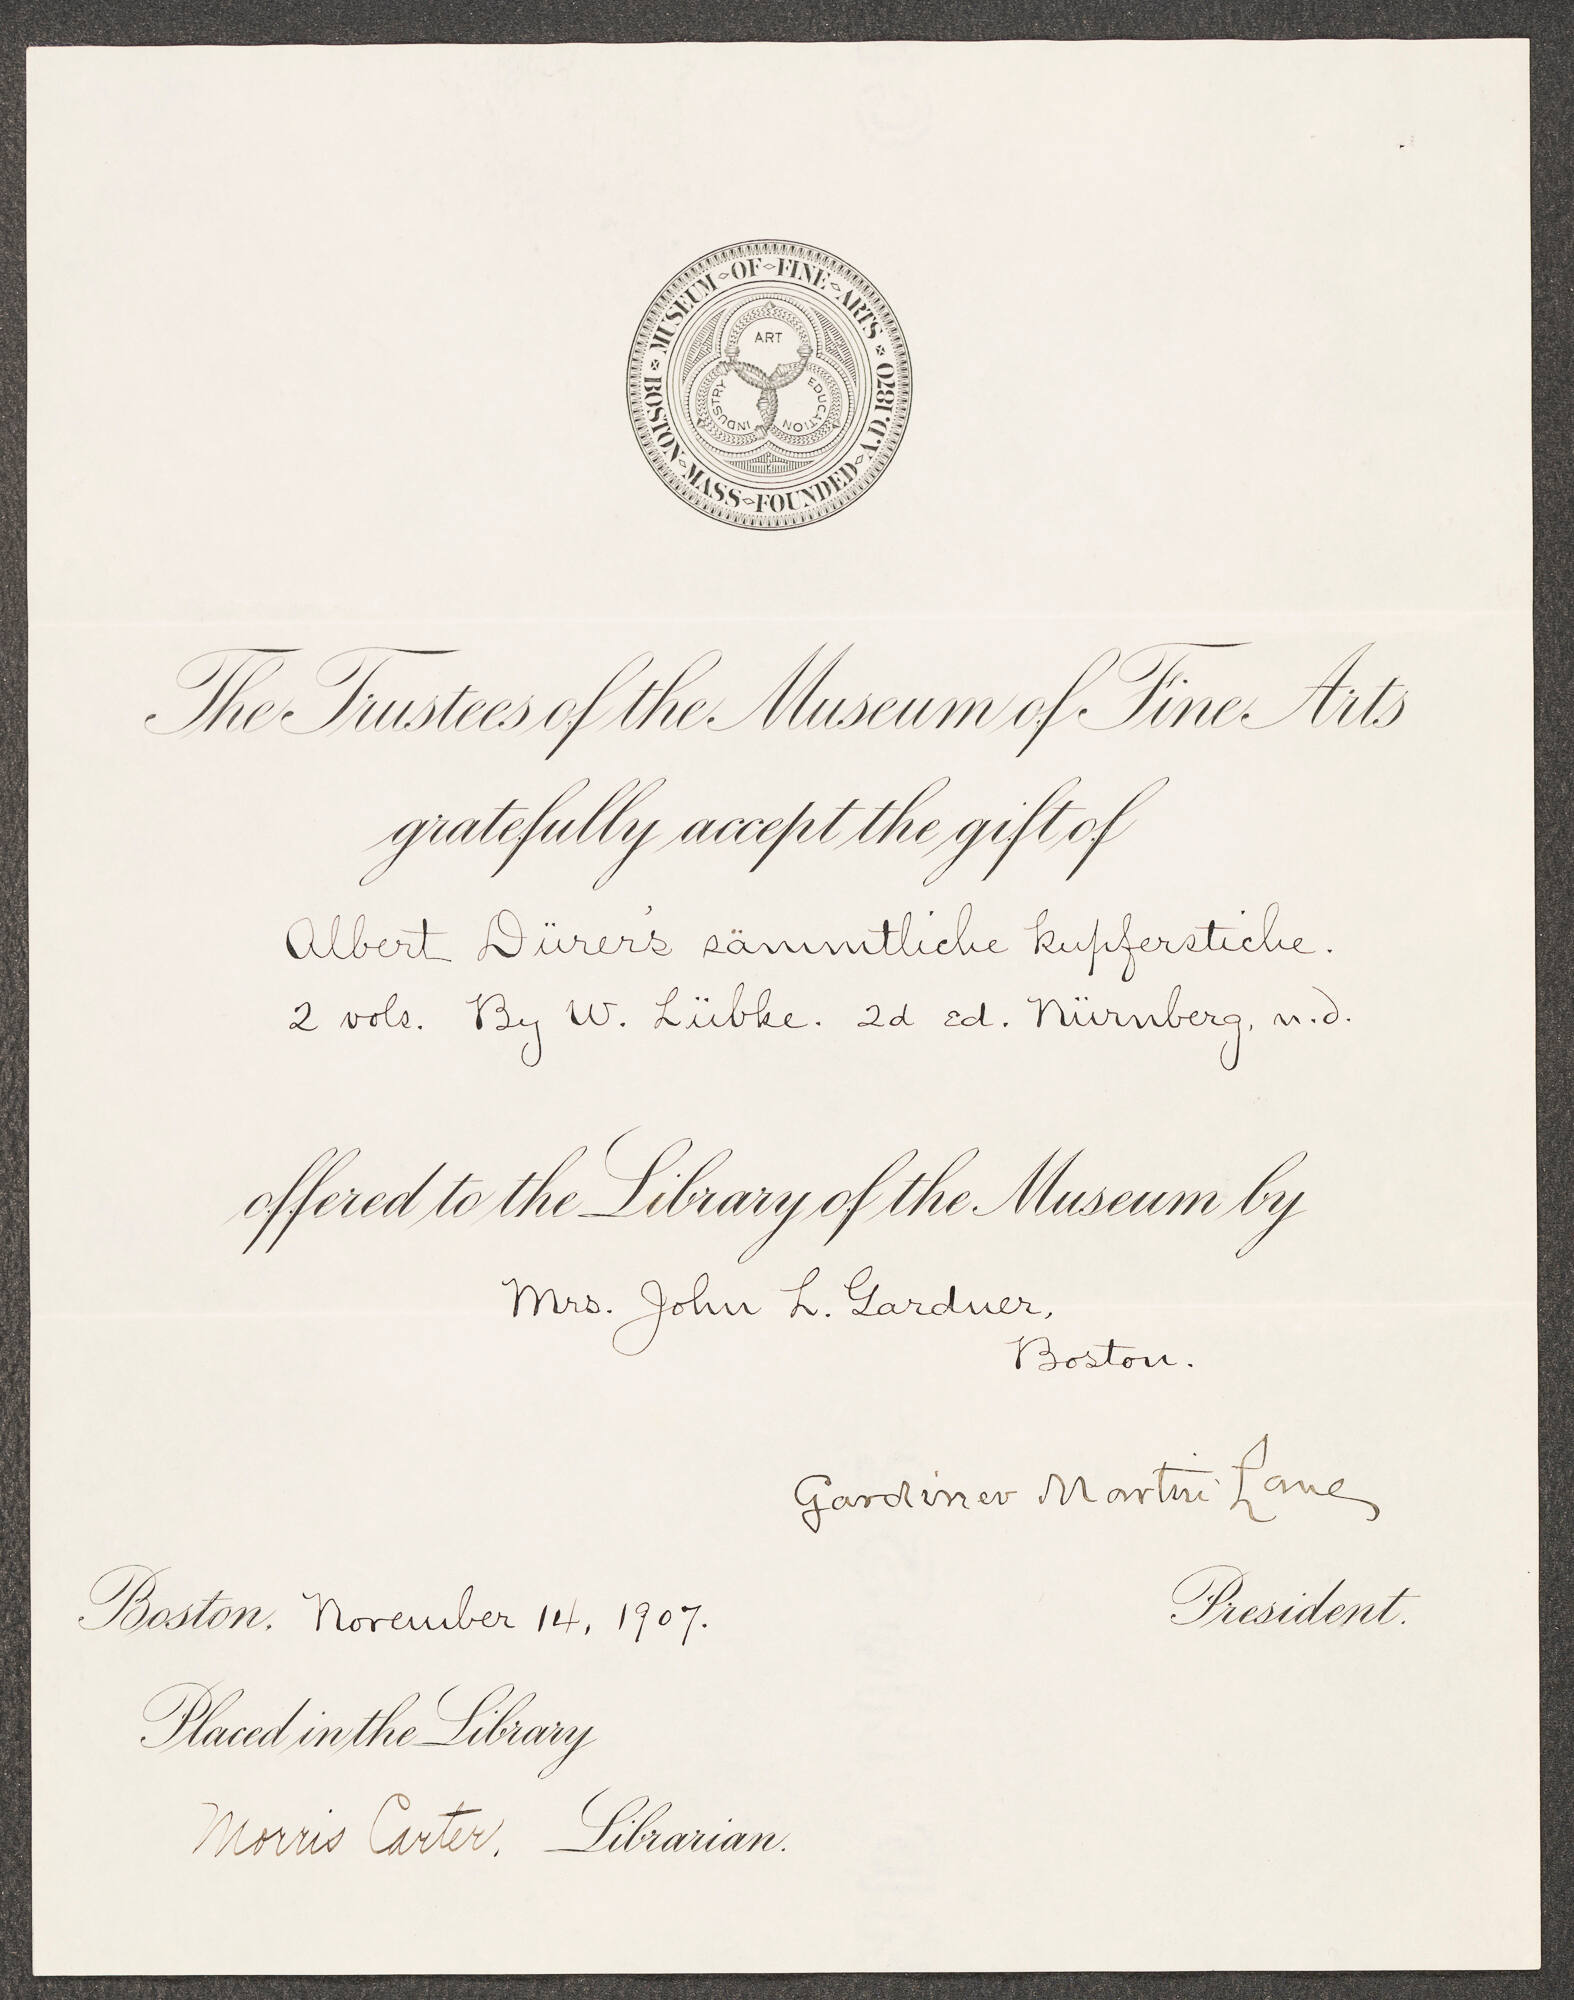 MUSEUM OF FINE ARTS
BOSTON MASS FOUNDED A.D. 1870
ART
INDUSTRY
EDUCATION
The Trustees of the Museum of Fine Arts
gratefully accept the gift of
Albert Dürer's sämmtliche kupferstiche.
2 vols. By W. Lübke. 2d ed. Nürnberg, n.d.
offered to the Library of the Museum by
Mrs. John L. Gardner,
Boston.
Gardiner Martin Lane
Boston, November 14, 1907.
President.
Placed in the Library
Morris Carter, Librarian.